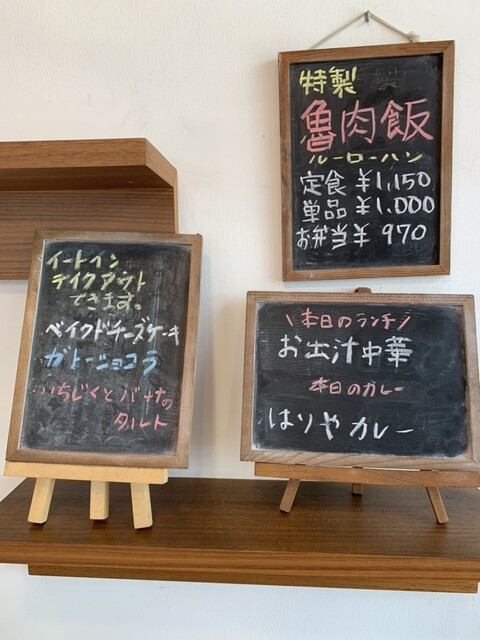 特製
魯肉飯
ルーローハン
定食 ¥1,150
単品 ¥1.000
お弁当¥ 970
イートイン
テイクアウト
できます。
ベイクドチーズケーキ
ガトーショコラ
いちじくとバナナの
タルト
\本日のランチ/
お出汁中華
本日のカレー
はりやカレー